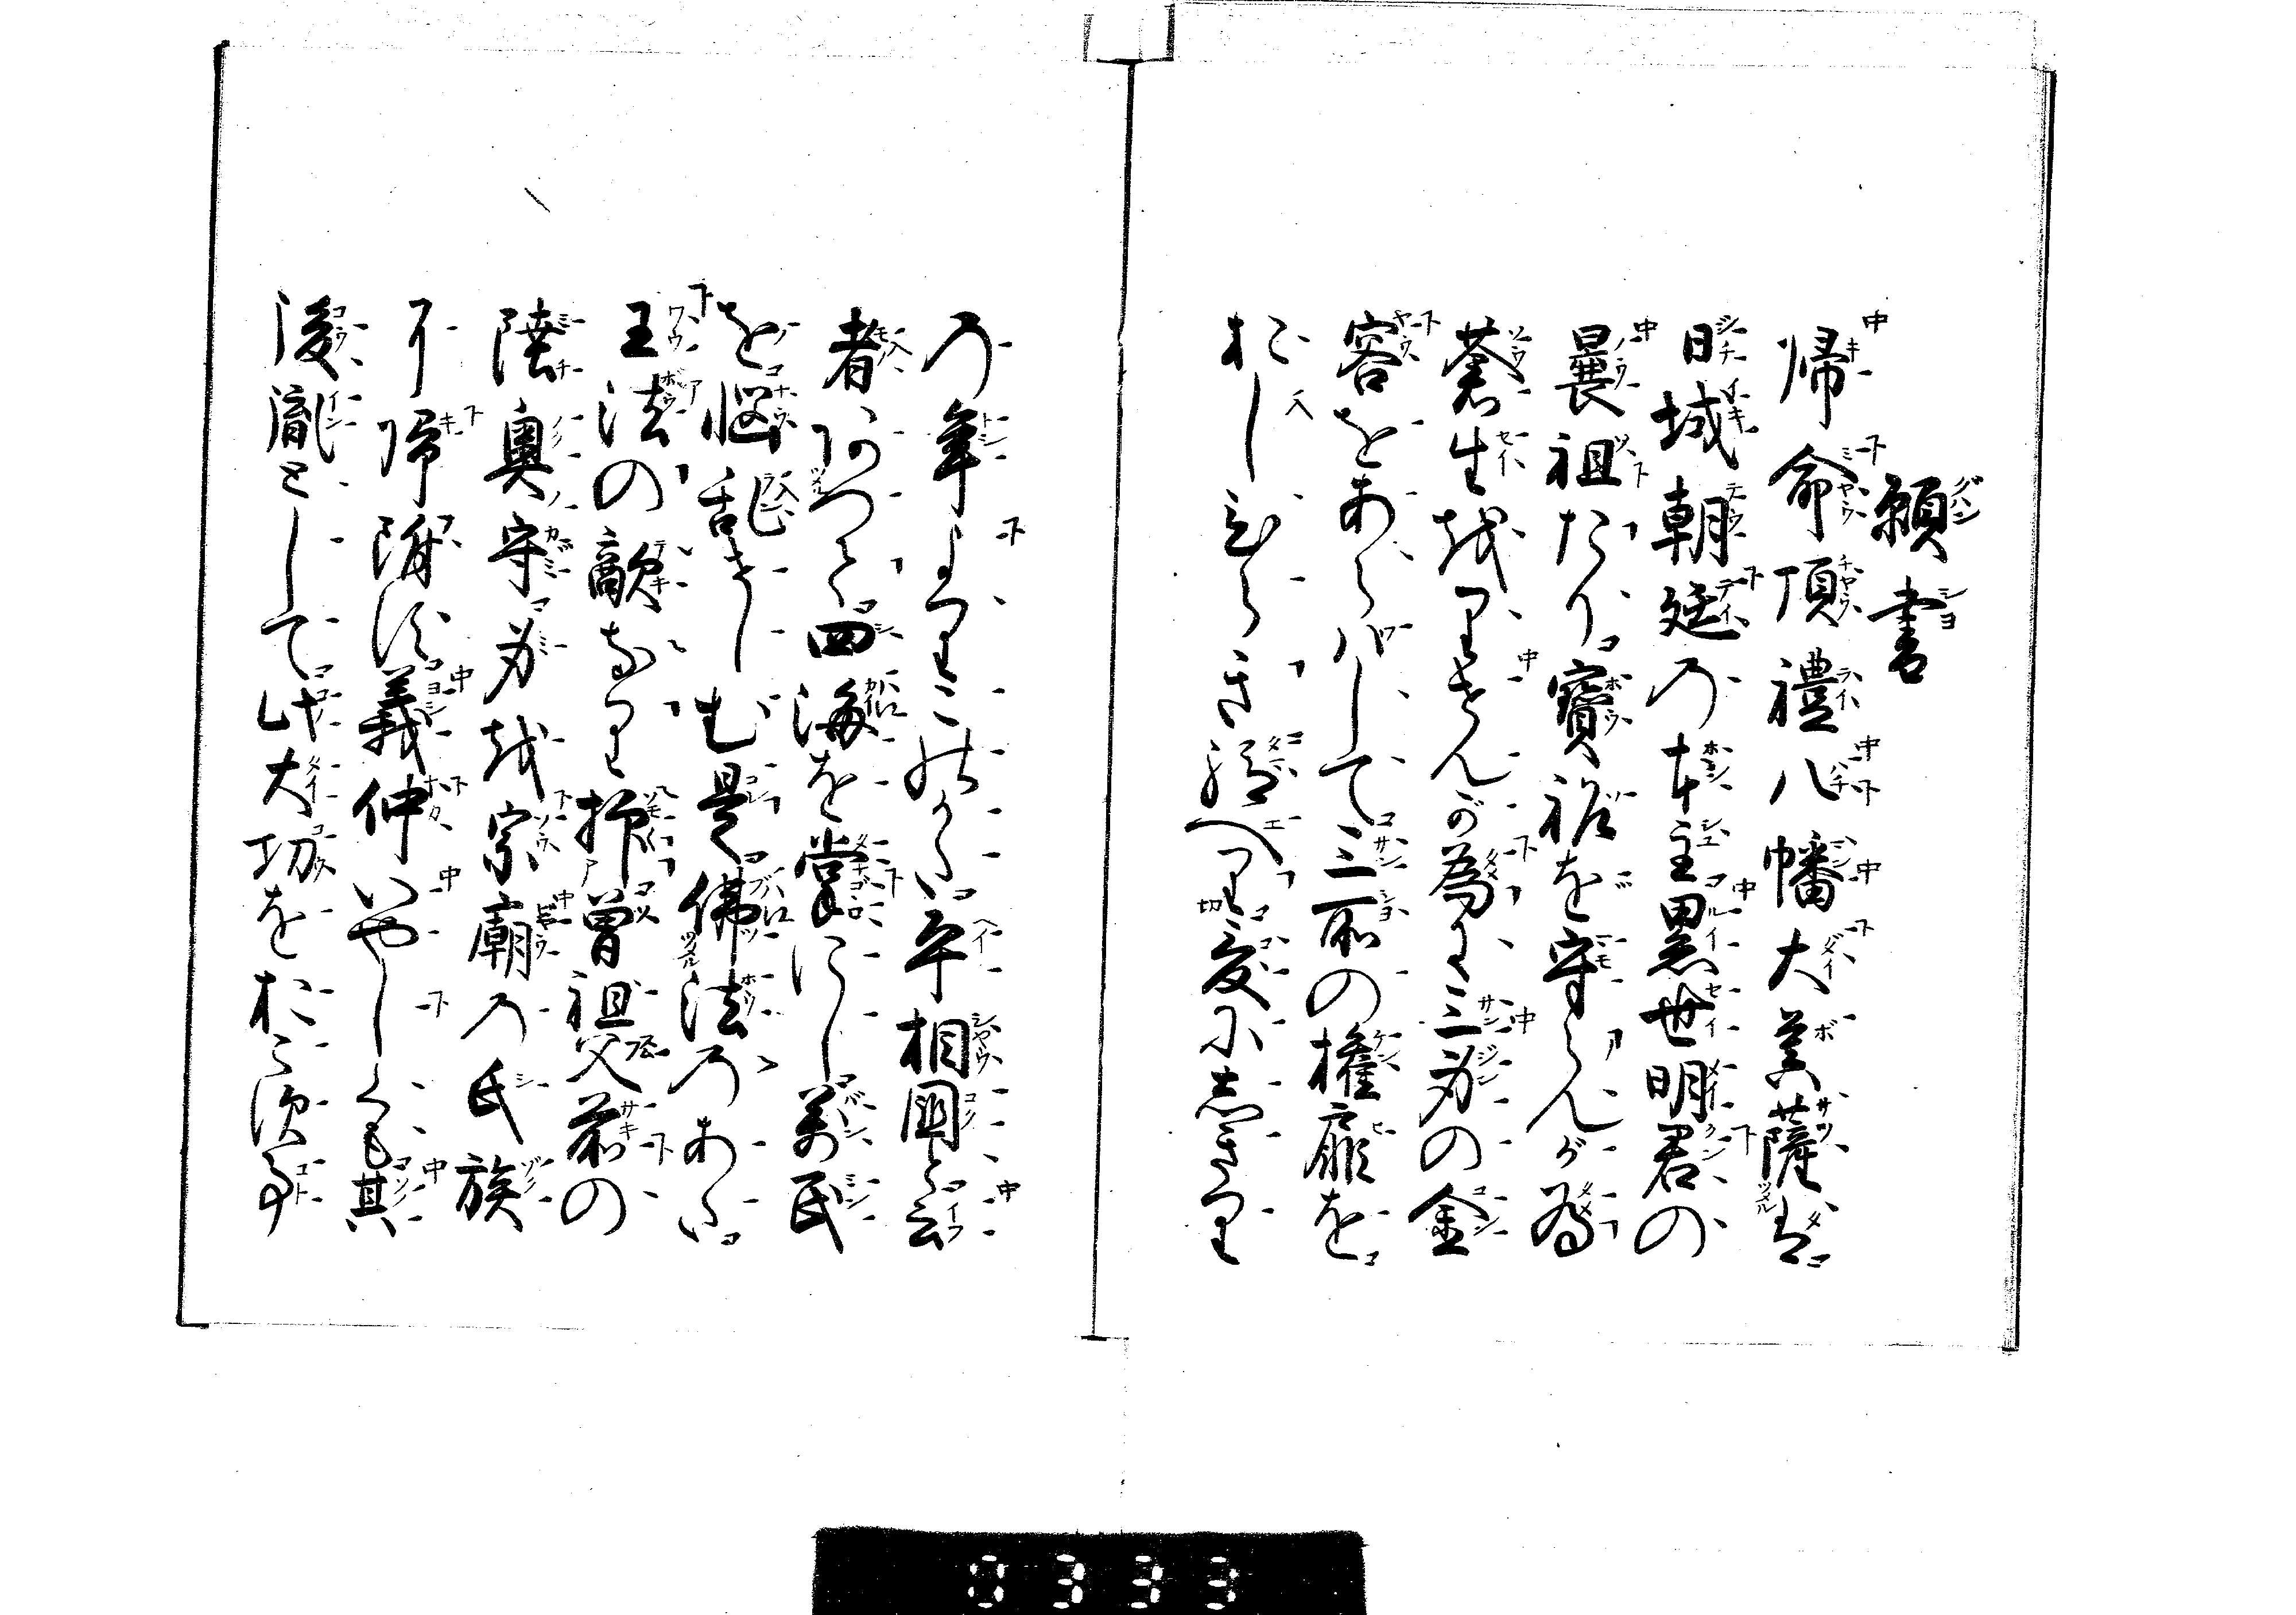 願書
帰命頂禮八幡大菩薩は
日域朝廷の本主累世明君の
曩祖たり寳祚を守らんが為
蒼生越りせんが為に三身の金
容をあらはして三所の権扉を
おしひらき給へり爰に志きり
の年よりこのかた平相国と云
者あつて四海を掌にし万民
を悩乱せしむ是佛法のあた
王法の敵なり抑曽祖父前の
陸奥守身越宗廟の氏族
に帰附す義仲いやしくも其
後胤として此大功をおこす事
0333